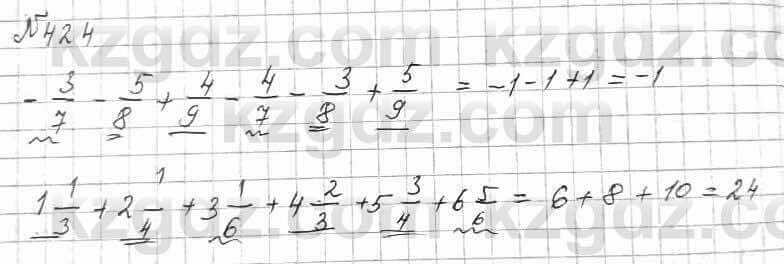 №424
-3/7 - 5/8 + 4/9 - 4/7 - 3/8 + 5/9 = -1-1+1=-1
1 1/3 + 2 1/4 + 3 1/6 + 4 2/3 + 5 3/4 + 6 5/6 = 6+8+10=24
kzgdz.com kzgdz.com
kzgdz.com
kzgdz.com kzgdz.com